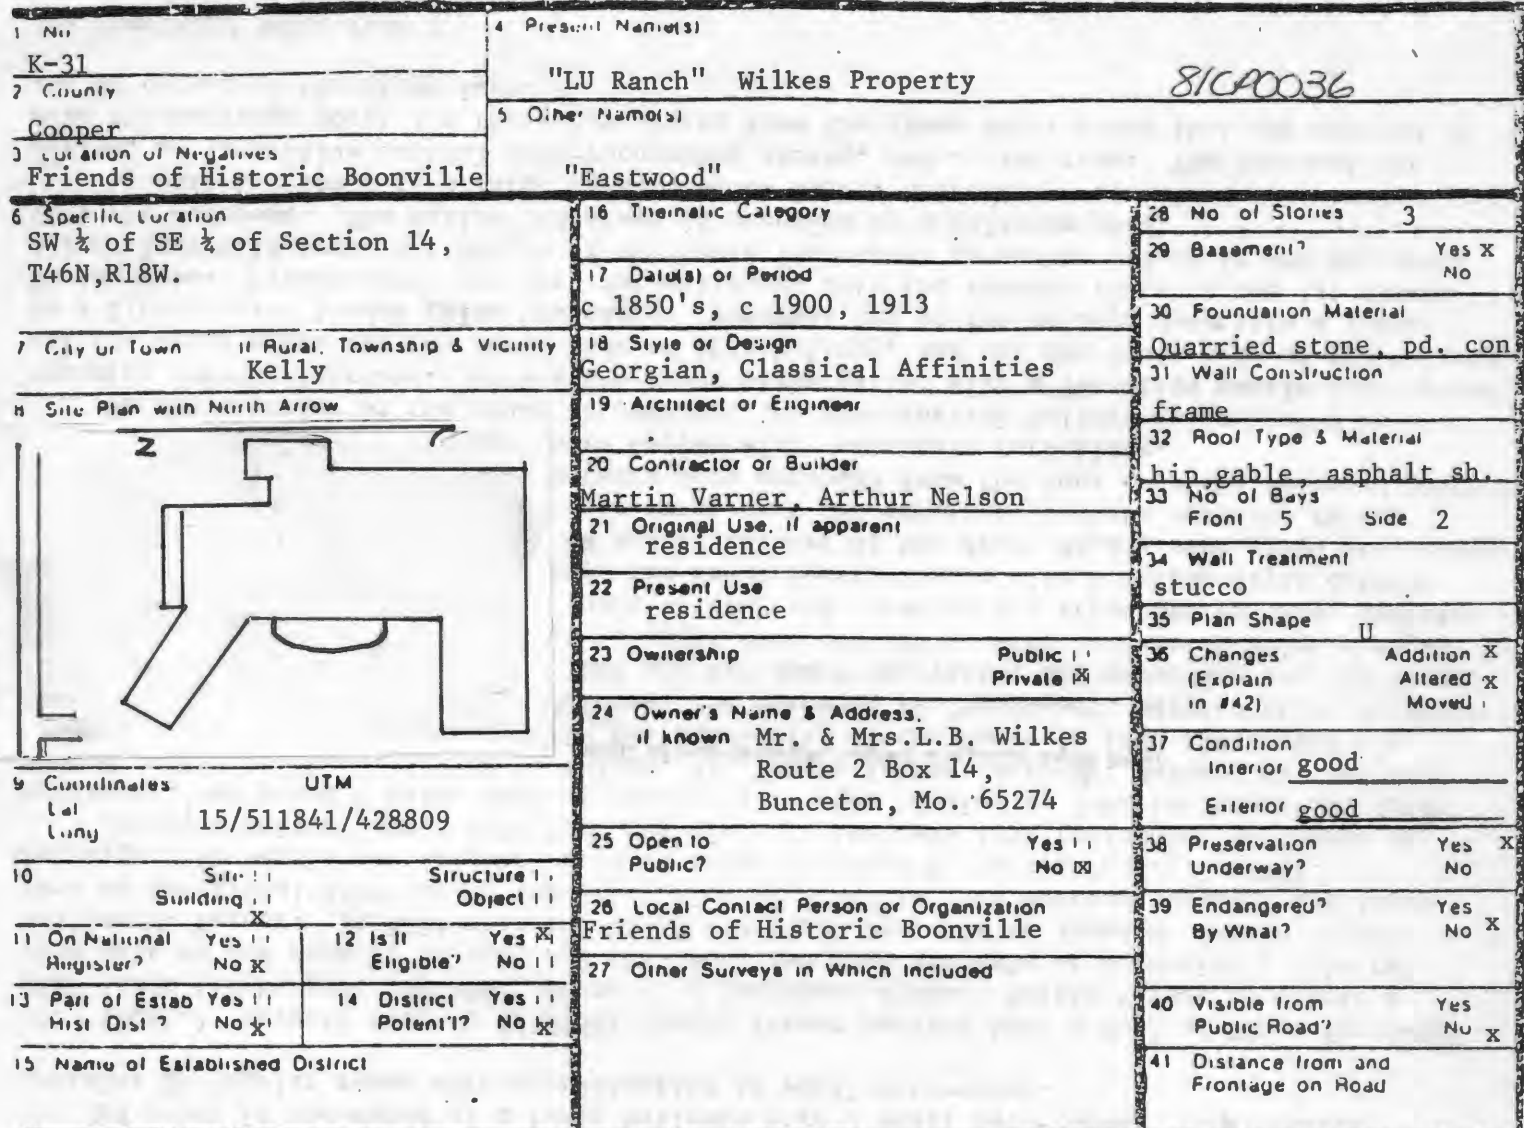 1 No
K-31
2 County
Cooper
3 Location of Negatives
Friends of Historic Boonville
4 Present Name(s)
"LU Ranch" Wilkes Property
81CP0036
5 Other Name(s)
"Eastwood"
6 Specific Location
SW ¼ of SE ¼ of Section 14,
T46N,R18W.
7 City or Town If Rural, Township & Vicinity
Kelly
8 Site Plan with North Arrow
N
9 Coordinates UTM
Lat
Long
15/511841/428809
10 Site Structure
Building Object
X
11 On National Yes
Register? No X
12 Is It Yes X
Eligible? No
13 Part of Estab Yes
Hist Dist? No X
14 District Yes
Potent'l? No X
15 Name of Established District
16 Thematic Category
17 Date(s) or Period
c 1850's, c 1900, 1913
18 Style or Design
Georgian, Classical Affinities
19 Architect or Engineer
20 Contractor or Builder
Martin Varner, Arthur Nelson
21 Original Use, if apparent
residence
22 Present Use
residence
23 Ownership Public
Private X
24 Owner's Name & Address,
if known Mr. & Mrs.L.B. Wilkes
Route 2 Box 14,
Bunceton, Mo. 65274
25 Open to Yes
Public? No X
26 Local Contact Person or Organization
Friends of Historic Boonville
27 Other Surveys in Which Included
28 No of Stories 3
29 Basement? Yes X
No
30 Foundation Material
Quarried stone, pd. con
31 Wall Construction
frame
32 Roof Type & Material
hip,gable, asphalt sh.
33 No of Bays
Front 5 Side 2
34 Wall Treatment
stucco
35 Plan Shape U
36 Changes Addition X
(Explain Altered X
in #42) Moved
37 Condition
Interior good
Exterior good
38 Preservation Yes X
Underway? No
39 Endangered? Yes
By What? No X
40 Visible from Yes
Public Road? No X
41 Distance from and
Frontage on Road